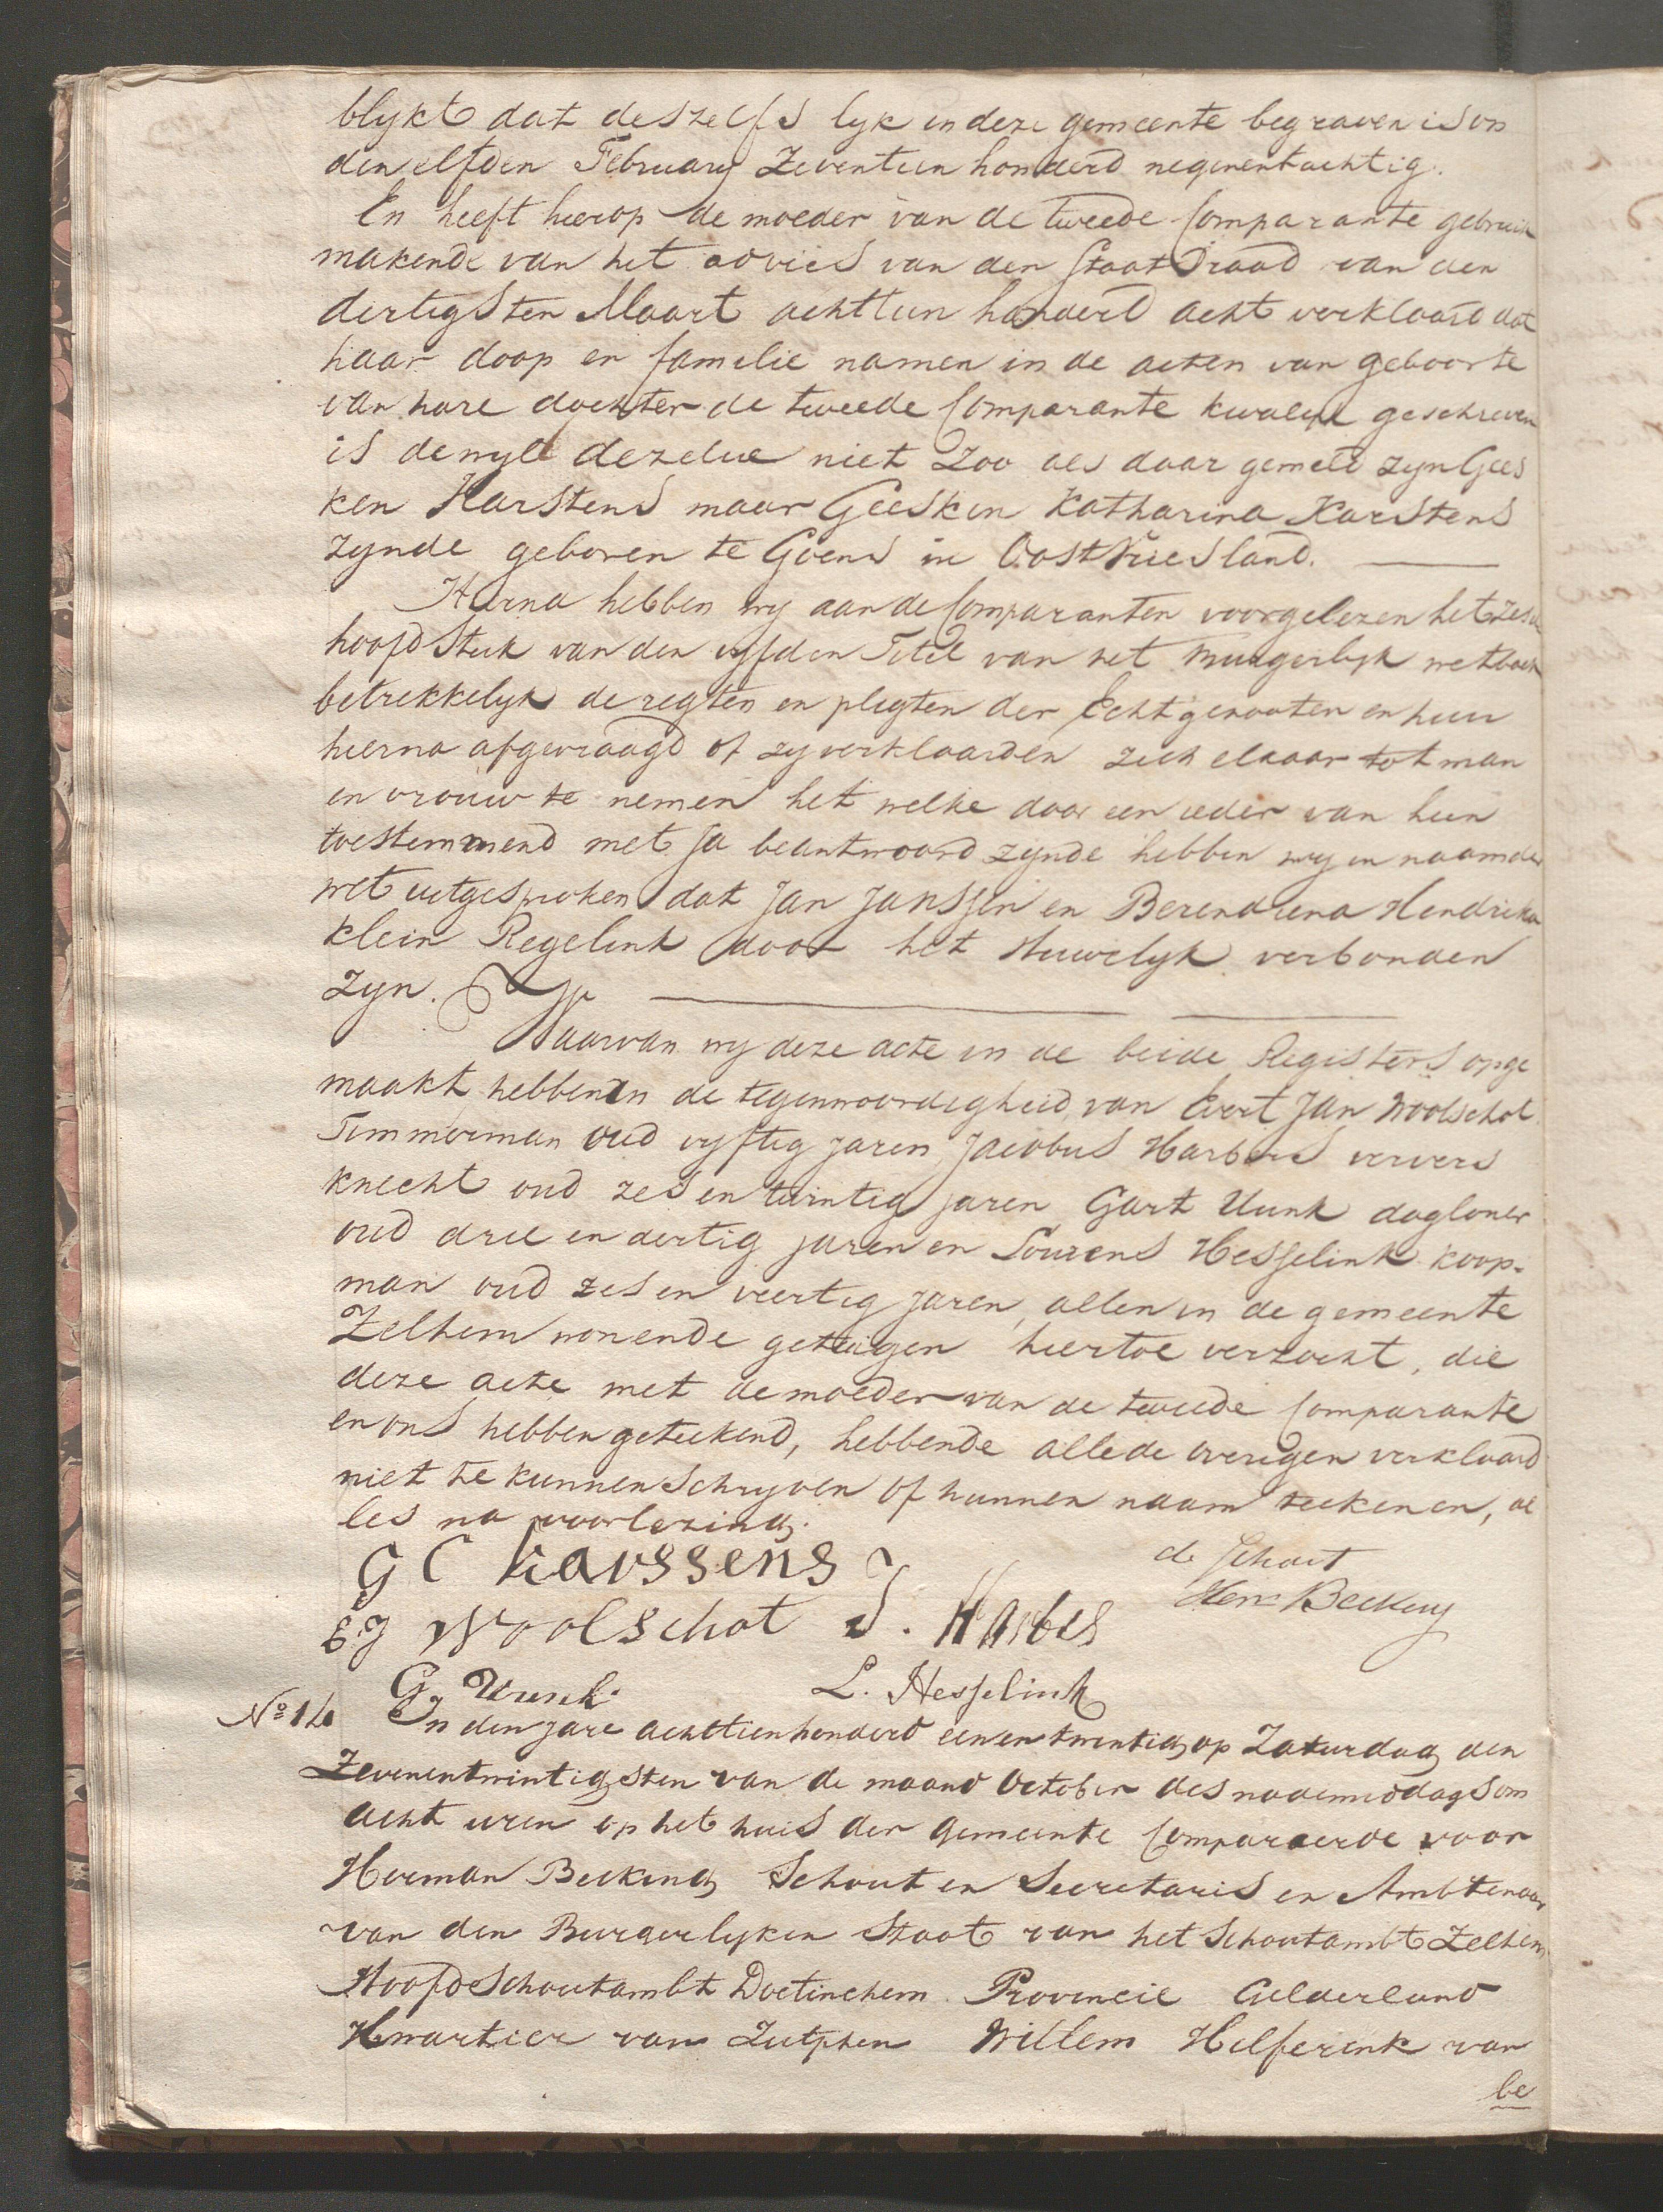 blykt dat deszelfs lyk in deze gemeente begraven is op
den elfden February Zeventien honderd negenentachtig.
En heeft hierop de moeder van de tweede Comparante gebruik
makende van het advies van den Staatsraad van den
dertigsten Maart achttien honderd acht verklaard dat
haar doop en familie namen in de acten van geboorte
van hare dochter de tweede Comparante kwalyk geschreven
is dewyl dezelve niet zoo als daar gemeld zyn Gees
ken Karstens maar Geesken Katharina Karstens
zynde geboren te Goens in Oostvriesland.
Hierna hebben wy aan de Comparanten voorgelezen het zesde
hoofdstuk van den vyfden Titel van het Burgerlyk wetboek
betrekkelyk de regten en pligten der Echtgenooten en hun
hierna afgevraagd of zy verklaarden zich elkaar tot man
en vrouw te nemen het welke door een ieder van hun
toestemmend met ja beantwoord zynde hebben wy in naam der
wet uitgesproken dat Jan Janssen en Berendiena Hendrika
klein Regelink door het Huwelyk verbonden
zyn.
Waarvan wy deze acte in de beide Registers opge
maakt hebben in de tegenwoordigheid van Evert Jan Woolschot
Timmerman oud vyftig jaren Jacobus Harbers ververs
knecht oud zes en twintig jaren Gart Uunk dagloner
oud drie en dertig jaren en Lourens Hesselink koop-
man oud zes en veertig jaren, allen in de gemeente
Zelhem wonende getuigen hiertoe verzocht, die
deze acte met de moeder van de tweede Comparante
en ons hebben geteekend, hebbende alle de overigen verklaard
niet te kunnen schryven of hunnen naam teekenen, al
les na voorlezing.
G C Karssens
de Schout
Herm Becking
E.J Woolschot J. Harbes
G Uunk. L. Hesselink
No 14 In den jare achttienhonderd eenen twintig op Zaturdag den
Zevenentwintigsten van de maand October des nademiddags om
acht uren op het huis der Gemeente Compareerde voor
Herman Becking Schout en Secretaris en Ambtenaar
van den Burgerlyken Staat van het Schoutambt Zelhem
Hoofdschoutambt Doetinchem Provincie Gelderland
Kwartier van Zutphen Willem Hilferink van
be